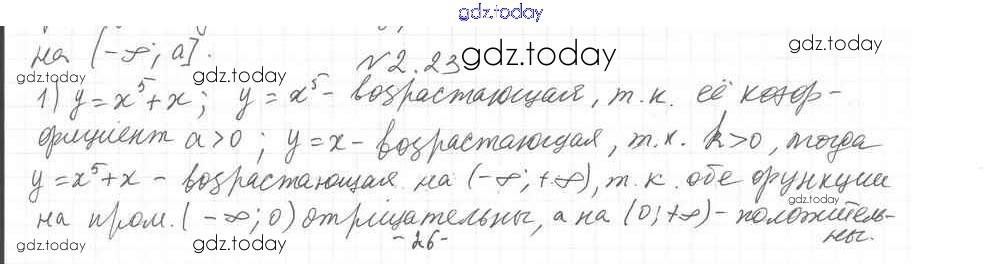 gdz.today
на (-∞; a].
№2.23 gdz.today
gdz.today gdz.today gdz.today gdz.today
1) y=x⁵+x; y=x⁵ - возрастающая, т.к. её коэф-
фициент a>0; y=x - возрастающая, т.к. k>0, тогда
y=x⁵+x - возрастающая на (-∞;+∞), т.к. обе функции
на пром. (-∞; 0) отрицательны, а на (0;+∞) - положитель-
ны.
gdz.today gdz.today gdz.today gdz.today
-26-